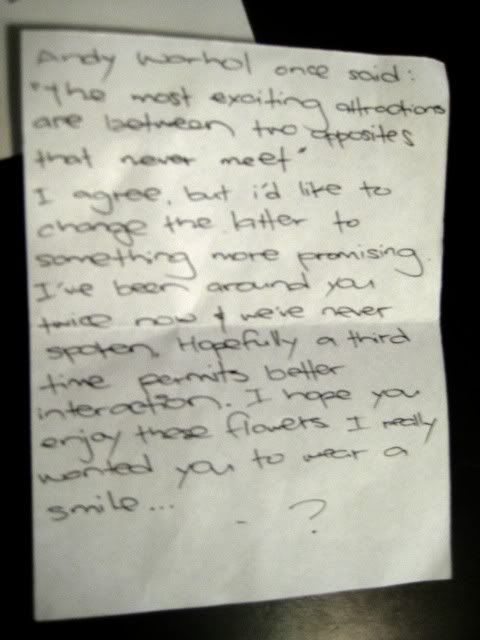 Andy Warhol once said:
"the most exciting attractions
are between two opposites
that never meet"
I agree, but i'd like to
change the latter to
something more promising.
I've been around you
twice now & we've never
spoken. Hopefully a third
time permits better
interaction. I hope you
enjoy these flowers I really
wanted you to wear a
smile...
- ?